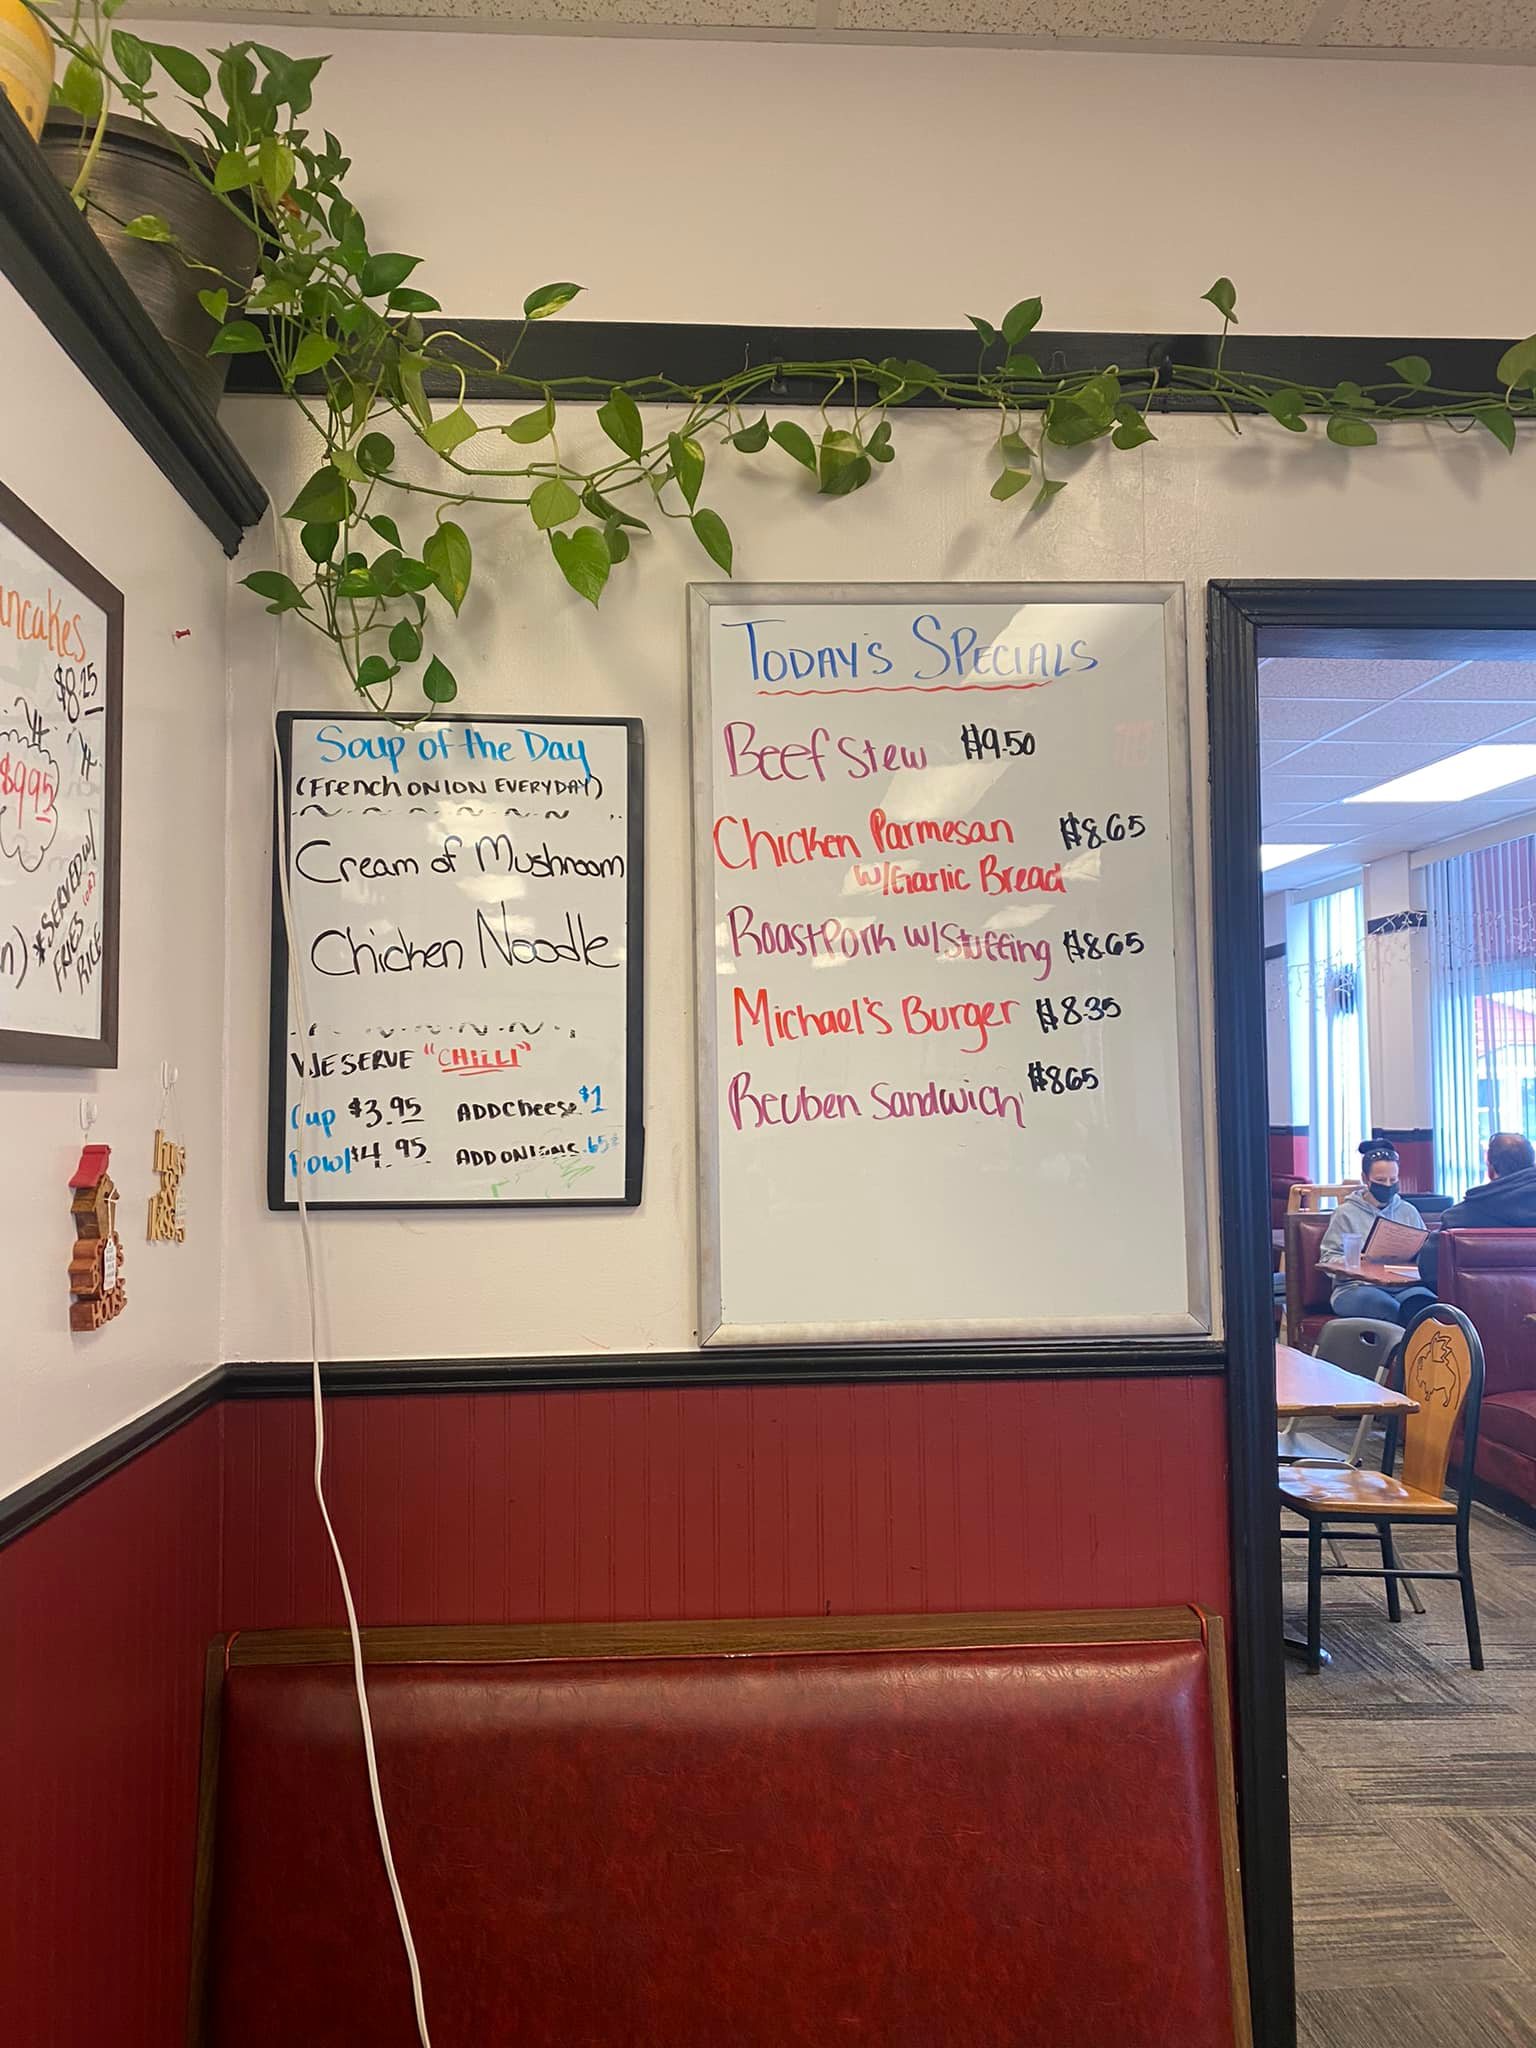 $8.25
$9.95
*SERVED W/
FRIES (OR)
RICE
Soup of the Day
(French ONION EVERYDAY)
Cream of Mushroom
Chicken Noodle
WE SERVE "CHILLI"
Cup $3.95 ADD Cheese $1
Bowl $4.95 ADD ONIONS .65¢
TODAY'S SPECIALS
Beef Stew $9.50
Chicken Parmesan $8.65
W/Garlic Bread
Roast Pork w/Stuffing $8.65
Michael's Burger $8.35
Reuben Sandwich $8.65
HOUSE
hugs
&
kisses